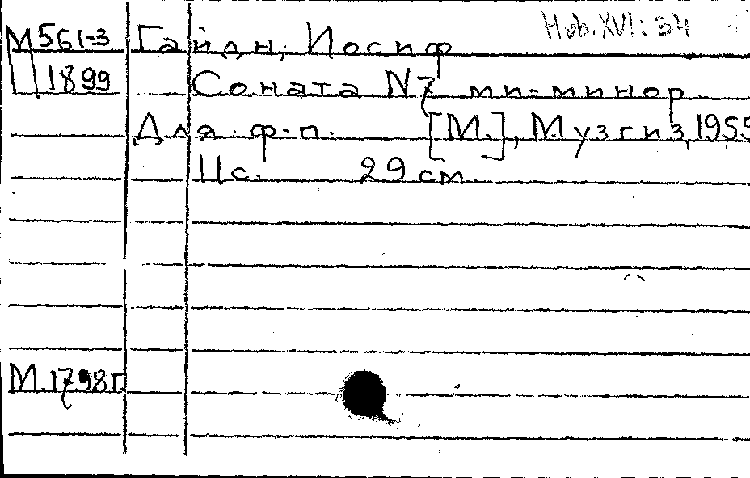 Hob. XVI: 34
М 561-3 Гайдн, Иосиф
1899 Соната N7 ми-минор.
Для ф-п. [М.], Музгиз, 1955
11 с. 29 см.
М. 1798 г